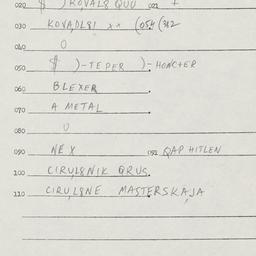 020 $ ) KOVALS QUO 021 I
030 KOVADL8I xx (054 (312
040 0
050 $ )-TEPER )-HONCTER
060 BLEXER
070 A METAL
080 U
090 NE X 091 QAP HITLEN
100 CIRUL8NIK QRUS.
110 CIRUL8NE MASTERSKAJA